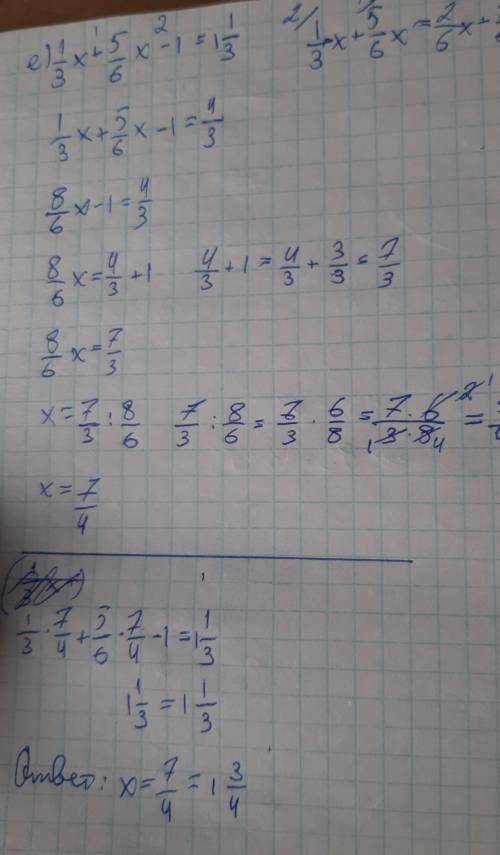 е) 1/3 x +¹ 5/6 x -² 1 = 1 1/3    2) 1/3 x + 5/6 x = 2/6 x +
1/3 x + 5/6 x - 1 = 4/3
8/6 x - 1 = 4/3
8/6 x = 4/3 + 1    4/3 + 1 = 4/3 + 3/3 = 7/3
8/6 x = 7/3
x = 7/3 : 8/6    7/3 : 8/6 = 7/3 · 6/8 = 7·6/3·8 =
x = 7/4
1/3 · 7/4 + 5/6 · 7/4 - 1 = 1 1/3
1 1/3 = 1 1/3
Ответ: x = 7/4 = 1 3/4